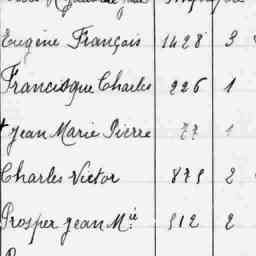 Eugène François 1428 3
Francisque Charles 226 1
+ Jean Marie Pierre 77 1
Charles Victor 879 2
Prosper Jean Mie 912 2